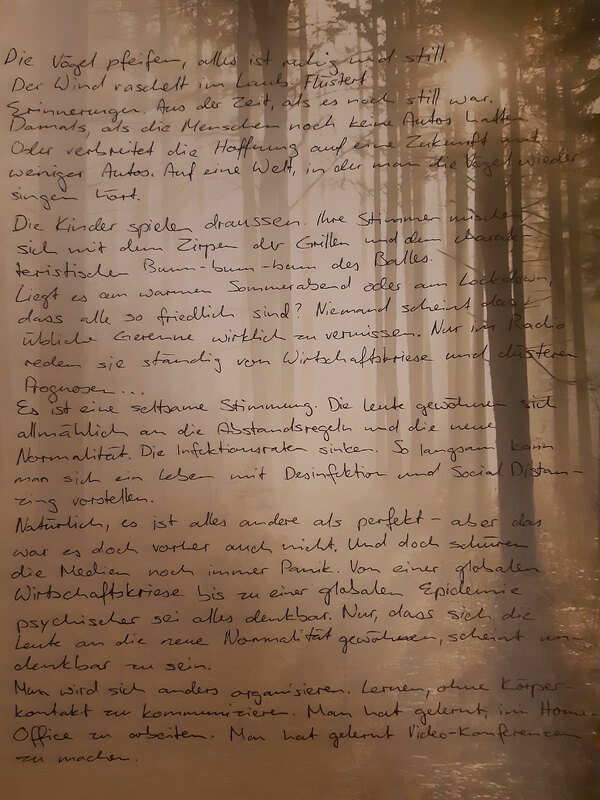 Die Vögel pfeifen, alles ist ruhig und still.
Der Wind raschelt im Laub. Flüstert
Erinnerungen. Aus der Zeit, als es noch still war.
Damals, als die Menschen noch keine Autos hatten.
Oder verbreitet die Hoffnung auf eine Zukunft mit
weniger Autos. Auf eine Welt, in der man die Vögel wieder
singen hört.
Die Kinder spielen draussen. Ihre Stimmen mischen
sich mit dem Zirpen der Grillen und dem charak-
teristischen Bumm-bum-bum des Balles.
Liegt es am warmen Sommerabend oder am Lockdown,
dass alle so friedlich sind? Niemand scheint das
übliche Gerenne wirklich zu vermissen. Nur im Radio
reden sie ständig von Wirtschaftskriese und düsteren
Prognosen...
Es ist eine seltsame Stimmung. Die Leute gewöhnen sich
allmählich an die Abstandsregeln und die neue
Normalität. Die Infektionsraten sinken. So langsam kann
man sich ein Leben mit Desinfektion und Social Distan-
zing vorstellen.
Natürlich, es ist alles andere als perfekt - aber das
war es doch vorher auch nicht. Und doch schüren
die Medien noch immer Panik. Von einer globalen
Wirtschaftskriese bis zu einer globalen Epidemie
psychischer sei alles denkbar. Nur, dass sich die
Leute an die neue Normalität gewöhnen, scheint un-
denkbar zu sein.
Man wird sich anders organisieren. Lernen, ohne Körper-
kontakt zu kommunizieren. Man hat gelernt, im Home-
Office zu arbeiten. Man hat gelernt Video-Konferenzen
zu machen.